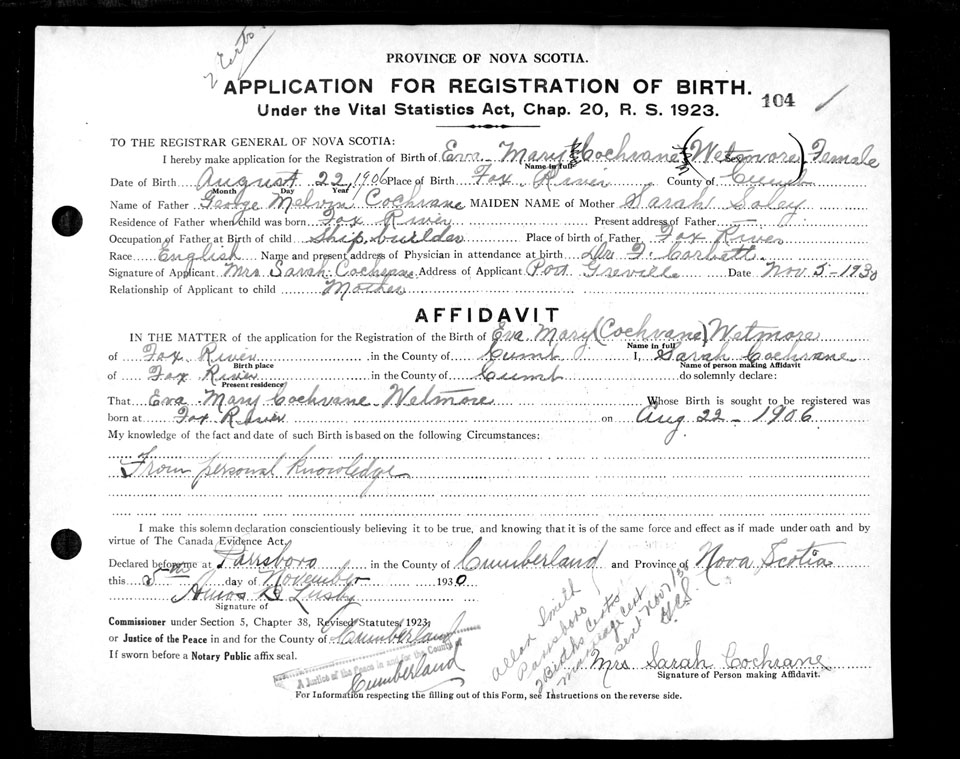 2 Certs
PROVINCE OF NOVA SCOTIA.
APPLICATION FOR REGISTRATION OF BIRTH.
104
Under the Vital Statistics Act, Chap. 20, R. S. 1923.
TO THE REGISTRAR GENERAL OF NOVA SCOTIA:
I hereby make application for the Registration of Birth of Eva Mary Cochrane (Wetmore) Female
Name in full
Date of Birth August 22, 1906 Place of Birth Fox River County of Cumb
Month Day Year
Name of Father George Melvin Cochrane MAIDEN NAME of Mother Sarah Saley
Residence of Father when child was born Fox River Present address of Father
Occupation of Father at Birth of child Ship builder Place of birth of Father Fox River
Race English Name and present address of Physician in attendance at birth Dr F. Corbett
Signature of Applicant Mrs Sarah Cochrane Address of Applicant Port Greville Date Nov 5-1930
Relationship of Applicant to child Mother
AFFIDAVIT
IN THE MATTER of the application for the Registration of the Birth of Eva Mary (Cochrane) Wetmore
Name in full
of Fox River in the County of Cumb I, Sarah Cochrane
Birth place Name of person making Affidavit
of Fox River in the County of Cumb do solemnly declare:
Present residence
That Eva Mary Cochrane Wetmore Whose Birth is sought to be registered was
born at Fox River on Aug 22-1906
My knowledge of the fact and date of such Birth is based on the following Circumstances:
From personal knowledge
I make this solemn declaration conscientiously believing it to be true, and knowing that it is of the same force and effect as if made under oath and by
virtue of The Canada Evidence Act.
Declared before me at Parrsboro in the County of Cumberland and Province of Nova Scotia
this 5th day of November 1930
Amos B Lusby
Signature of
Commissioner under Section 5, Chapter 38, Revised Statutes, 1923,
or Justice of the Peace in and for the County of Cumberland
If sworn before a Notary Public affix seal.
A Justice of the Peace in and for the County
Cumberland
Allan Smith
Parrsboro
2 Births Certs
Marriage cert
sent Nov 7/30
Mrs Sarah Cochrane
Signature of Person making Affidavit.
For Information respecting the filling out of this Form, see Instructions on the reverse side.